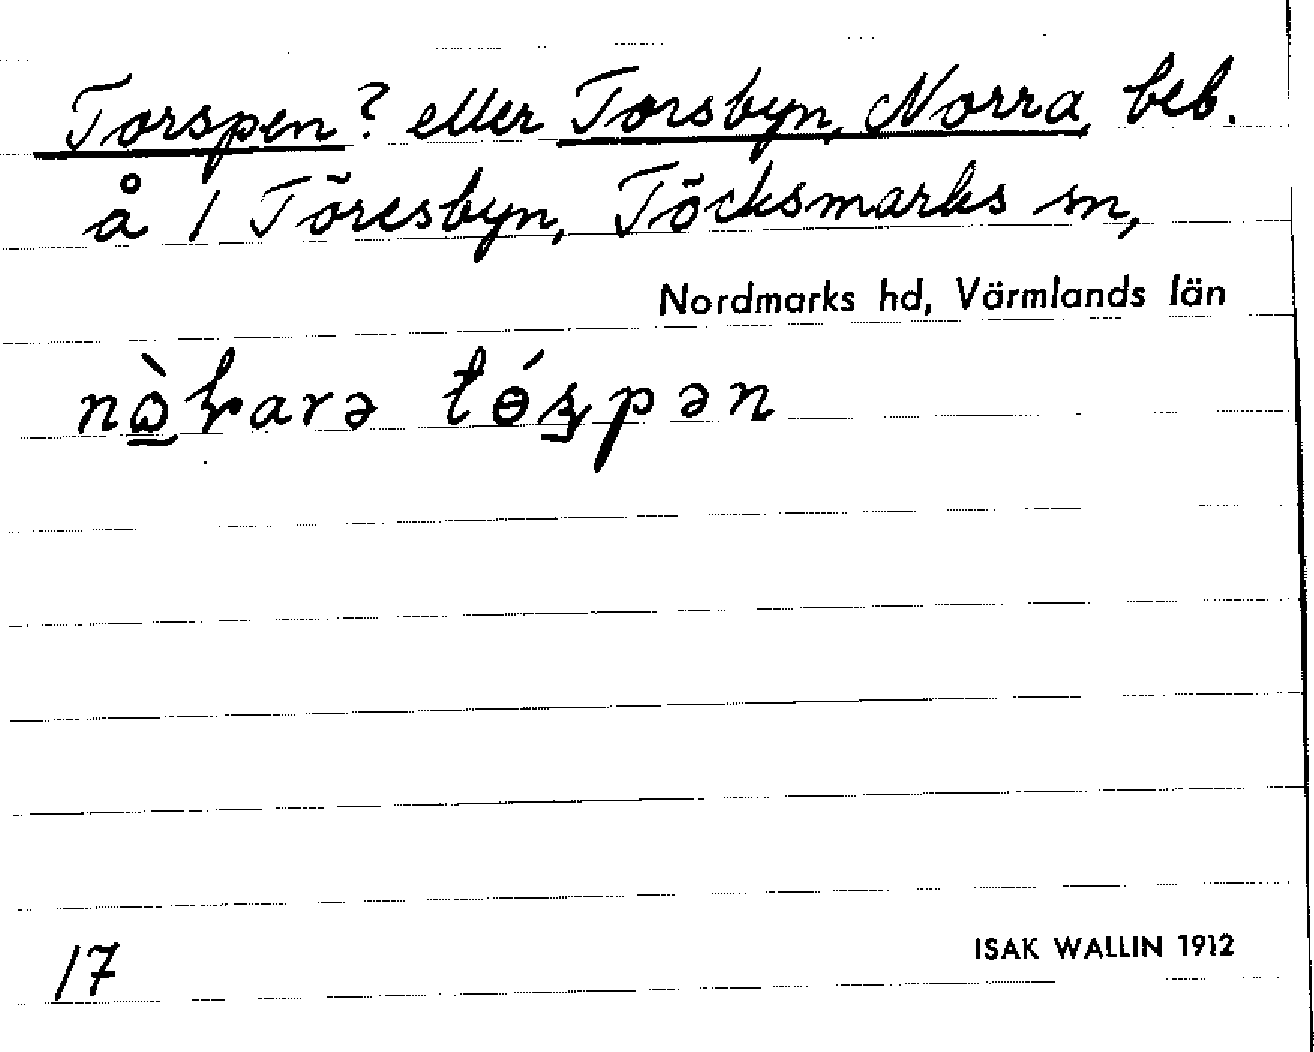 Torspen? eller Torsbyn, Norra, beb.
å 1 Töresbyn, Töcksmarks sn,
Nordmarks hd, Värmlands län
17
ISAK WALLIN 1912